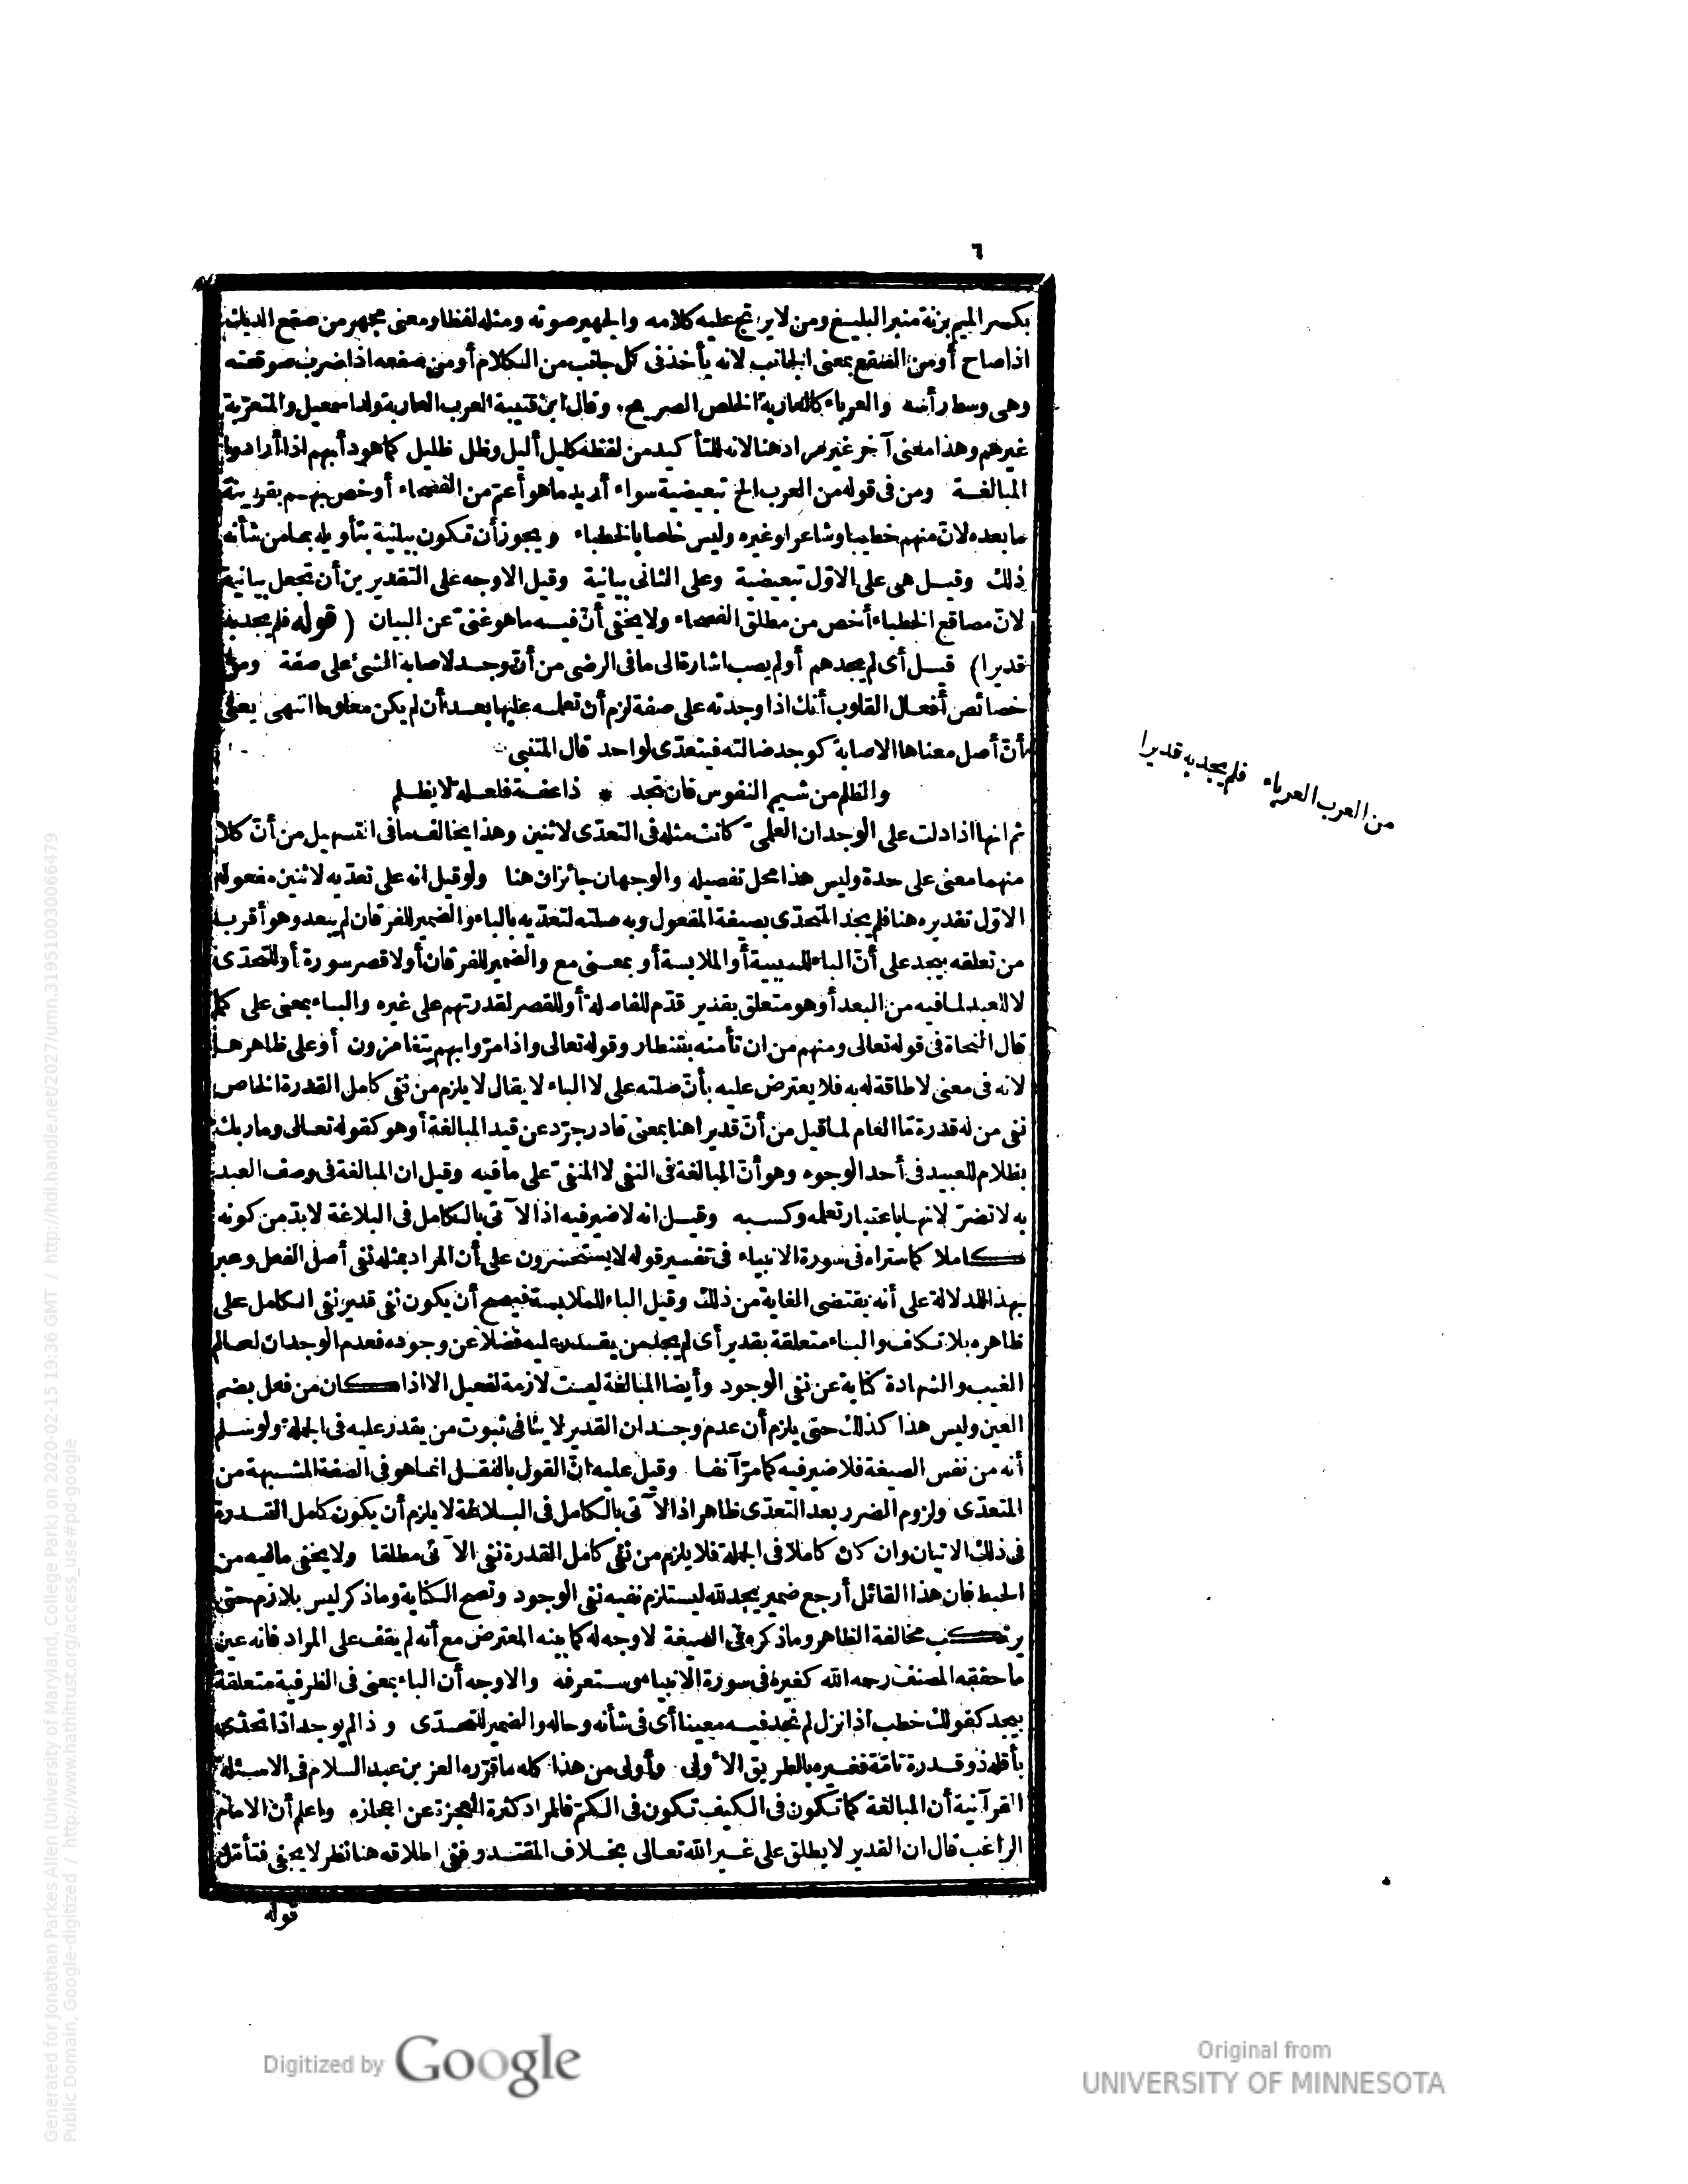 ٦
بكسر الميم بزنة منبر البليغ ومن لا يرتج عليه كلامه والجهير صوته ومثله لفظا ومعنى مجهر من صقع الديك
اذا صاح أو من الصقع بمعنى الجانب لانه يأخذ فى كل جانب من الكلام أو من صقعه اذا ضرب صوقعته
وهى وسط رأسه والعرباء كالعاربة الخلص الصريح، وقال ابن قتيبة العرب العاربة ولد اسمعيل والمتعرّبة
غيرهم وهذا معنى آخر غير مراد هنا لانه للتأكيد من لفظه كليل أليل وظل ظليل كما هو دأبهم اذا أرادوا
المبالغة ومن فى قوله من العرب الخ تبعيضية سواء أريد ما هو أعمّ من الفصحاء أو خص بهم بقرينة
ما بعده لانّ منهم خطيبا وشاعرا وغيره وليس خاصا بالخطباء ويجوز أن تكون بيانية بتأويله بمامن شأنه
ذلك وقيل هى على الاوّل تبعيضية وعلى الثانى بيانية وقيل الاوجه على التقديرين أن تجعل بيانية
لانّ مصاقع الخطباء أخص من مطلق الفصحاء ولا يخفى أنّ فيه ما هو غنىّ عن البيان ( قوله فلم يجد به
قديرا) قيل أى لم يجدهم أو لم يصب اشارة الى ما فى الرضى من أنّ وجد لاصابة الشئ على صفة ومن
خصائص أفعال القلوب أنك اذا وجدته على صفة لزم أن تعلمه عليها بعد أن لم يكن معلوما انتهى يعنى
أنّ أصل معناها الاصابة كوجد ضالته فيتعدّى لواحد قال المتنبى
والظلم من شيم النفوس فان تجد * ذا عفة فلعلة لا يظلم
ثم انها اذا دلت على الوجدان العلمىّ كانت مثله فى التعدّى لاثنين وهذا يخالف ما فى التسهيل من أنّ كلا
منهما معنى على حدة وليس هذا محل تفصيله والوجهان جائزان هنا ولو قيل انه على تعدّيه لاثنين مفعوله
الاوّل تقديره هنا فلم يجد المتحدّى بصيغة المفعول وبه صلته لتعدّيه بالباء والضمير للفرقان لم يبعد وهو أقرب
من تعلقه بيجد على أنّ الباء للسببية أو الملابسة أو بمعنى مع والضمير للفرقان أو لاقصر سورة أو للتحدّى
لا للعبد لما فيه من البعد أو هو متعلق بقدير قدّم للفاصلة أو للقصر لقدرتهم على غيره والباء بمعنى على كما
قال النحاة فى قوله تعالى ومنهم من ان تأمنه بقنطار وقوله تعالى واذا مرّوا بهم يتغامزون أو على ظاهرها
لانه فى معنى لا طاقة له به فلا يعترض عليه بأنّ صلته على لا الباء لا يقال لا يلزم من نفى كامل القدرة الخاص
نفى من له قدرة مّا العام لما قيل من أنّ قديرا هنا بمعنى قادر جرّد عن قيد المبالغة أو هو كقوله تعالى وما ربك
بظلام للعبيد فى أحد الوجوه وهو أنّ المبالغة فى النفى لا المنفىّ على ما فيه وقيل ان المبالغة فى وصف العبد
به لا تضرّ لانها باعتبار تعلمه وكسبه وقيل انه لا ضير فيه اذ الآتى بالكامل فى البلاغة لا بدّ من كونه
كاملا كما ستراه فى سورة الانبياء فى تفسير قوله لا يستحسرون على أن المراد بمثله نفى أصل الفعل وعبر
بهذا للدلالة على أنه يقتضى الغاية من ذلك وقيل الباء للملابسة فيصح أن يكون نفى قدير نفى الكامل على
ظاهره بلا تكلف والباء متعلقة بقدير أى لم يجد من يقتدر عليه فضلا عن وجوده فعدم الوجدان لعالم
الغيب والشهادة كناية عن نفى الوجود وأيضا المبالغة ليست لازمة لفعيل الا اذا كان من فعل بضم
العين وليس هذا كذلك حتى يلزم أن عدم وجدان القدير لا ينافى ثبوت من يقدر عليه فى الجملة ولو سلم
أنه من نفس الصيغة فلا ضير فيه كما مرّ آنفا وقيل عليه انّ القول بالنقل انما هو فى الصفة المشبهة من
المتعدّى ولزوم الضرر بعد التعدّى ظاهر اذ الآتى بالكامل فى البلاغة لا يلزم أن يكون كامل القدرة
فى ذلك الاتيان وان كان كاملا فى الجملة فلا يلزم من نفى كامل القدرة نفى الآتى مطلقا ولا يخفى ما فيه من
الخبط فان هذا القائل أرجع ضمير يجد لله ليستلزم نفيه نفى الوجود وتصح الكناية وما ذكر ليس بلازم حتى
يرتكب مخالفة الظاهر وما ذكره فى الصيغة لا وجه له كما بينه المعترض مع أنه لم يقف على المراد فانه عين
ما حققه المصنف رحمه الله كغيره فى سورة الانبياء وستعرفه والاوجه أن الباء بمعنى فى الظرفية متعلقة
بيجد كقولك خطب اذا نزل لم نجد فيه معينا أى فى شأنه وحاله والضمير للتحدّى و ذالم يوجد اذا تحدّى
بأقله ذو قدرة تامّة فغيره بالطريق الأولى وأولى من هذا كله ما قرّره العز بن عبد السلام فى الاسئلة
القرآنية أن المبالغة كما تكون فى الكيف تكون فى الكمّ فالمراد كثرة العجزة عن اعجازه واعلم أن الامام
الراغب قال ان القدير لا يطلق على غير الله تعالى بخلاف المقتدر وفى اطلاقه هنا نظر لا يخفى فتأمّل
قوله
من العرب العرباء فلم يجد به قديرا
Digitized by Google
Original from
UNIVERSITY OF MINNESOTA
Generated for Jonathan Parkes Allen (University of Maryland, College Park) on 2020-02-15 19:36 GMT / http://hdl.handle.net/2027/umn.319510030066479
Public Domain, Google-digitized / http://www.hathitrust.org/access_use#pd-google